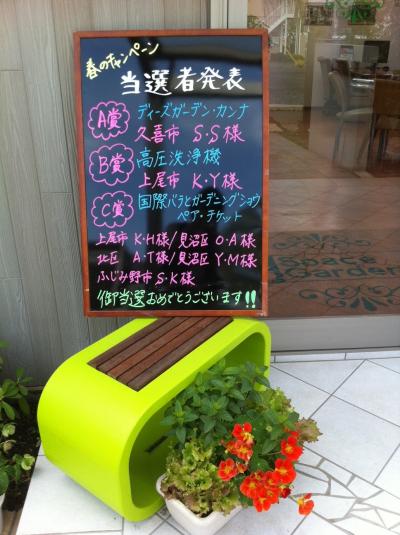 春のキャンペーン
当選者発表
A賞 ディーズガーデン・カンナ
久喜市 S・S様
B賞 高圧洗浄機
上尾市 K・Y様
C賞 国際バラとガーデニングショウ
ペア・チケット
上尾市 K・H様/見沼区 O・A様
北区 A・T様/見沼区 Y・M様
ふじみ野市 S・K様
御当選おめでとうございます!!
Space
Garden